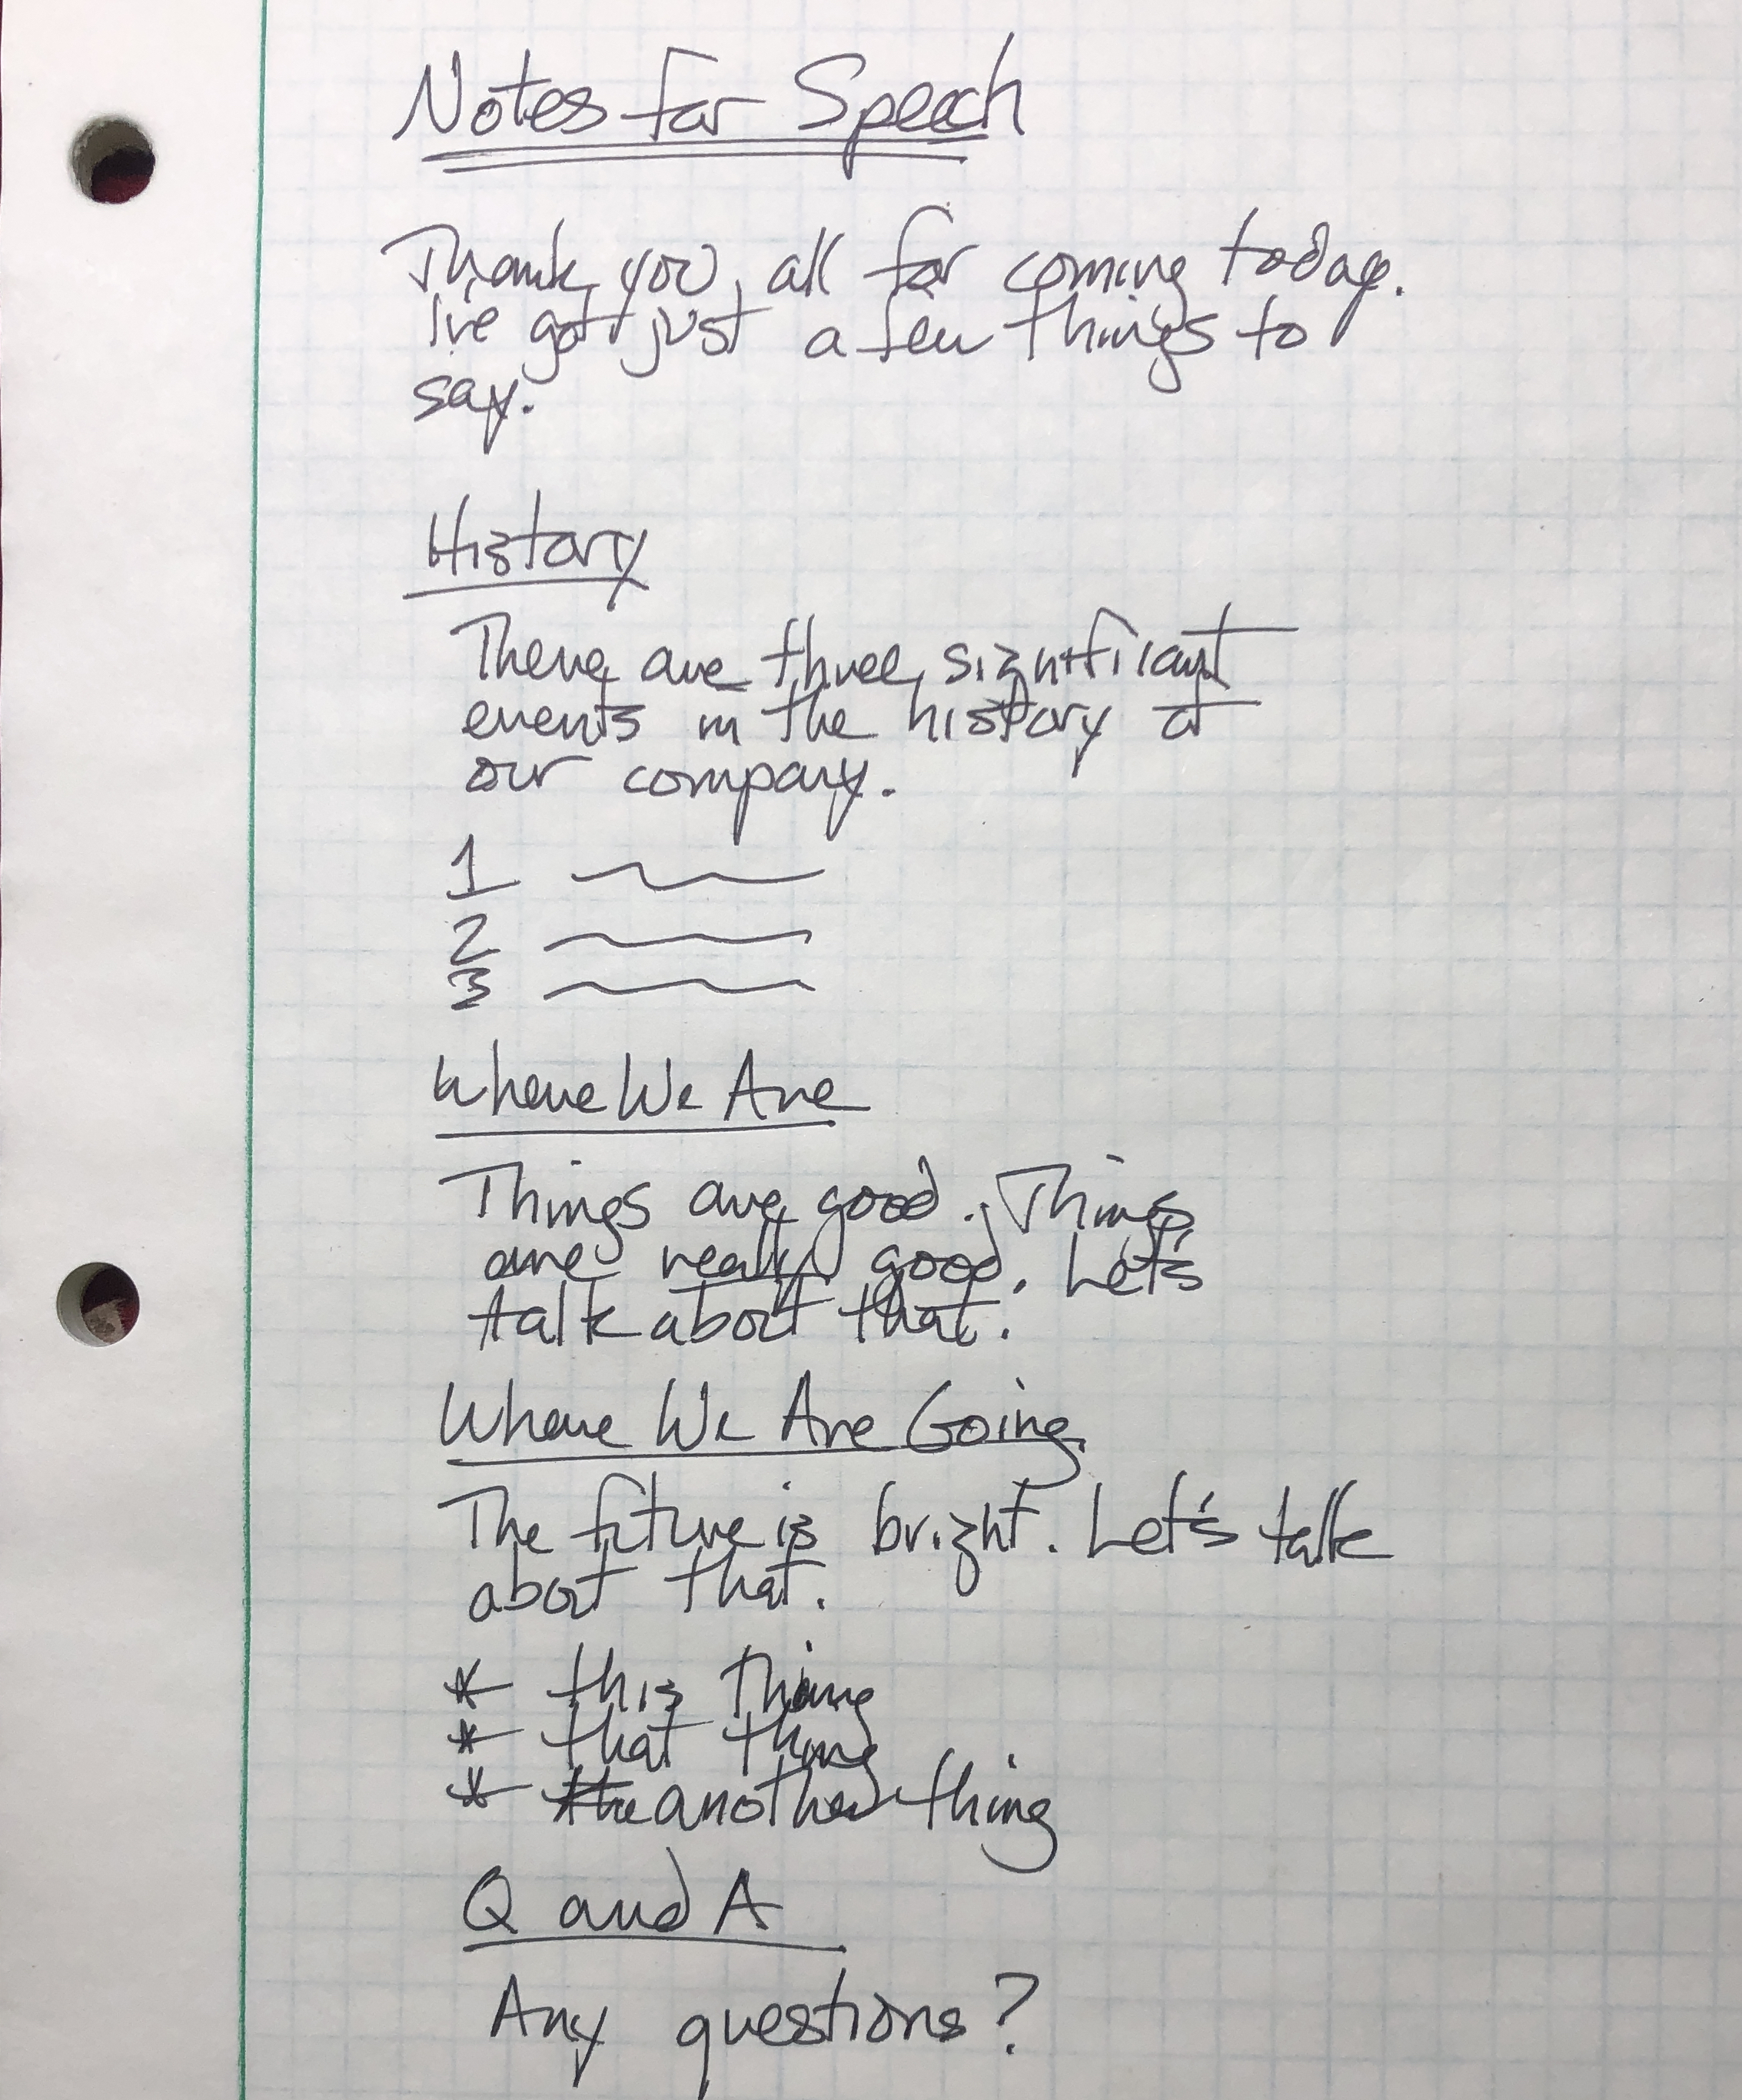 Notes for Speech
Thank you all for coming today.
I've got just a few things to
say.
History
There are three significant
events in the history of
our company.
1
2
3
Where We Are
Things are good. Things
are really good. Let's
talk about that.
Where We Are Going
The future is bright. Let's talk
about that.
* this thing
* that thing
* the another thing
Q and A
Any questions?